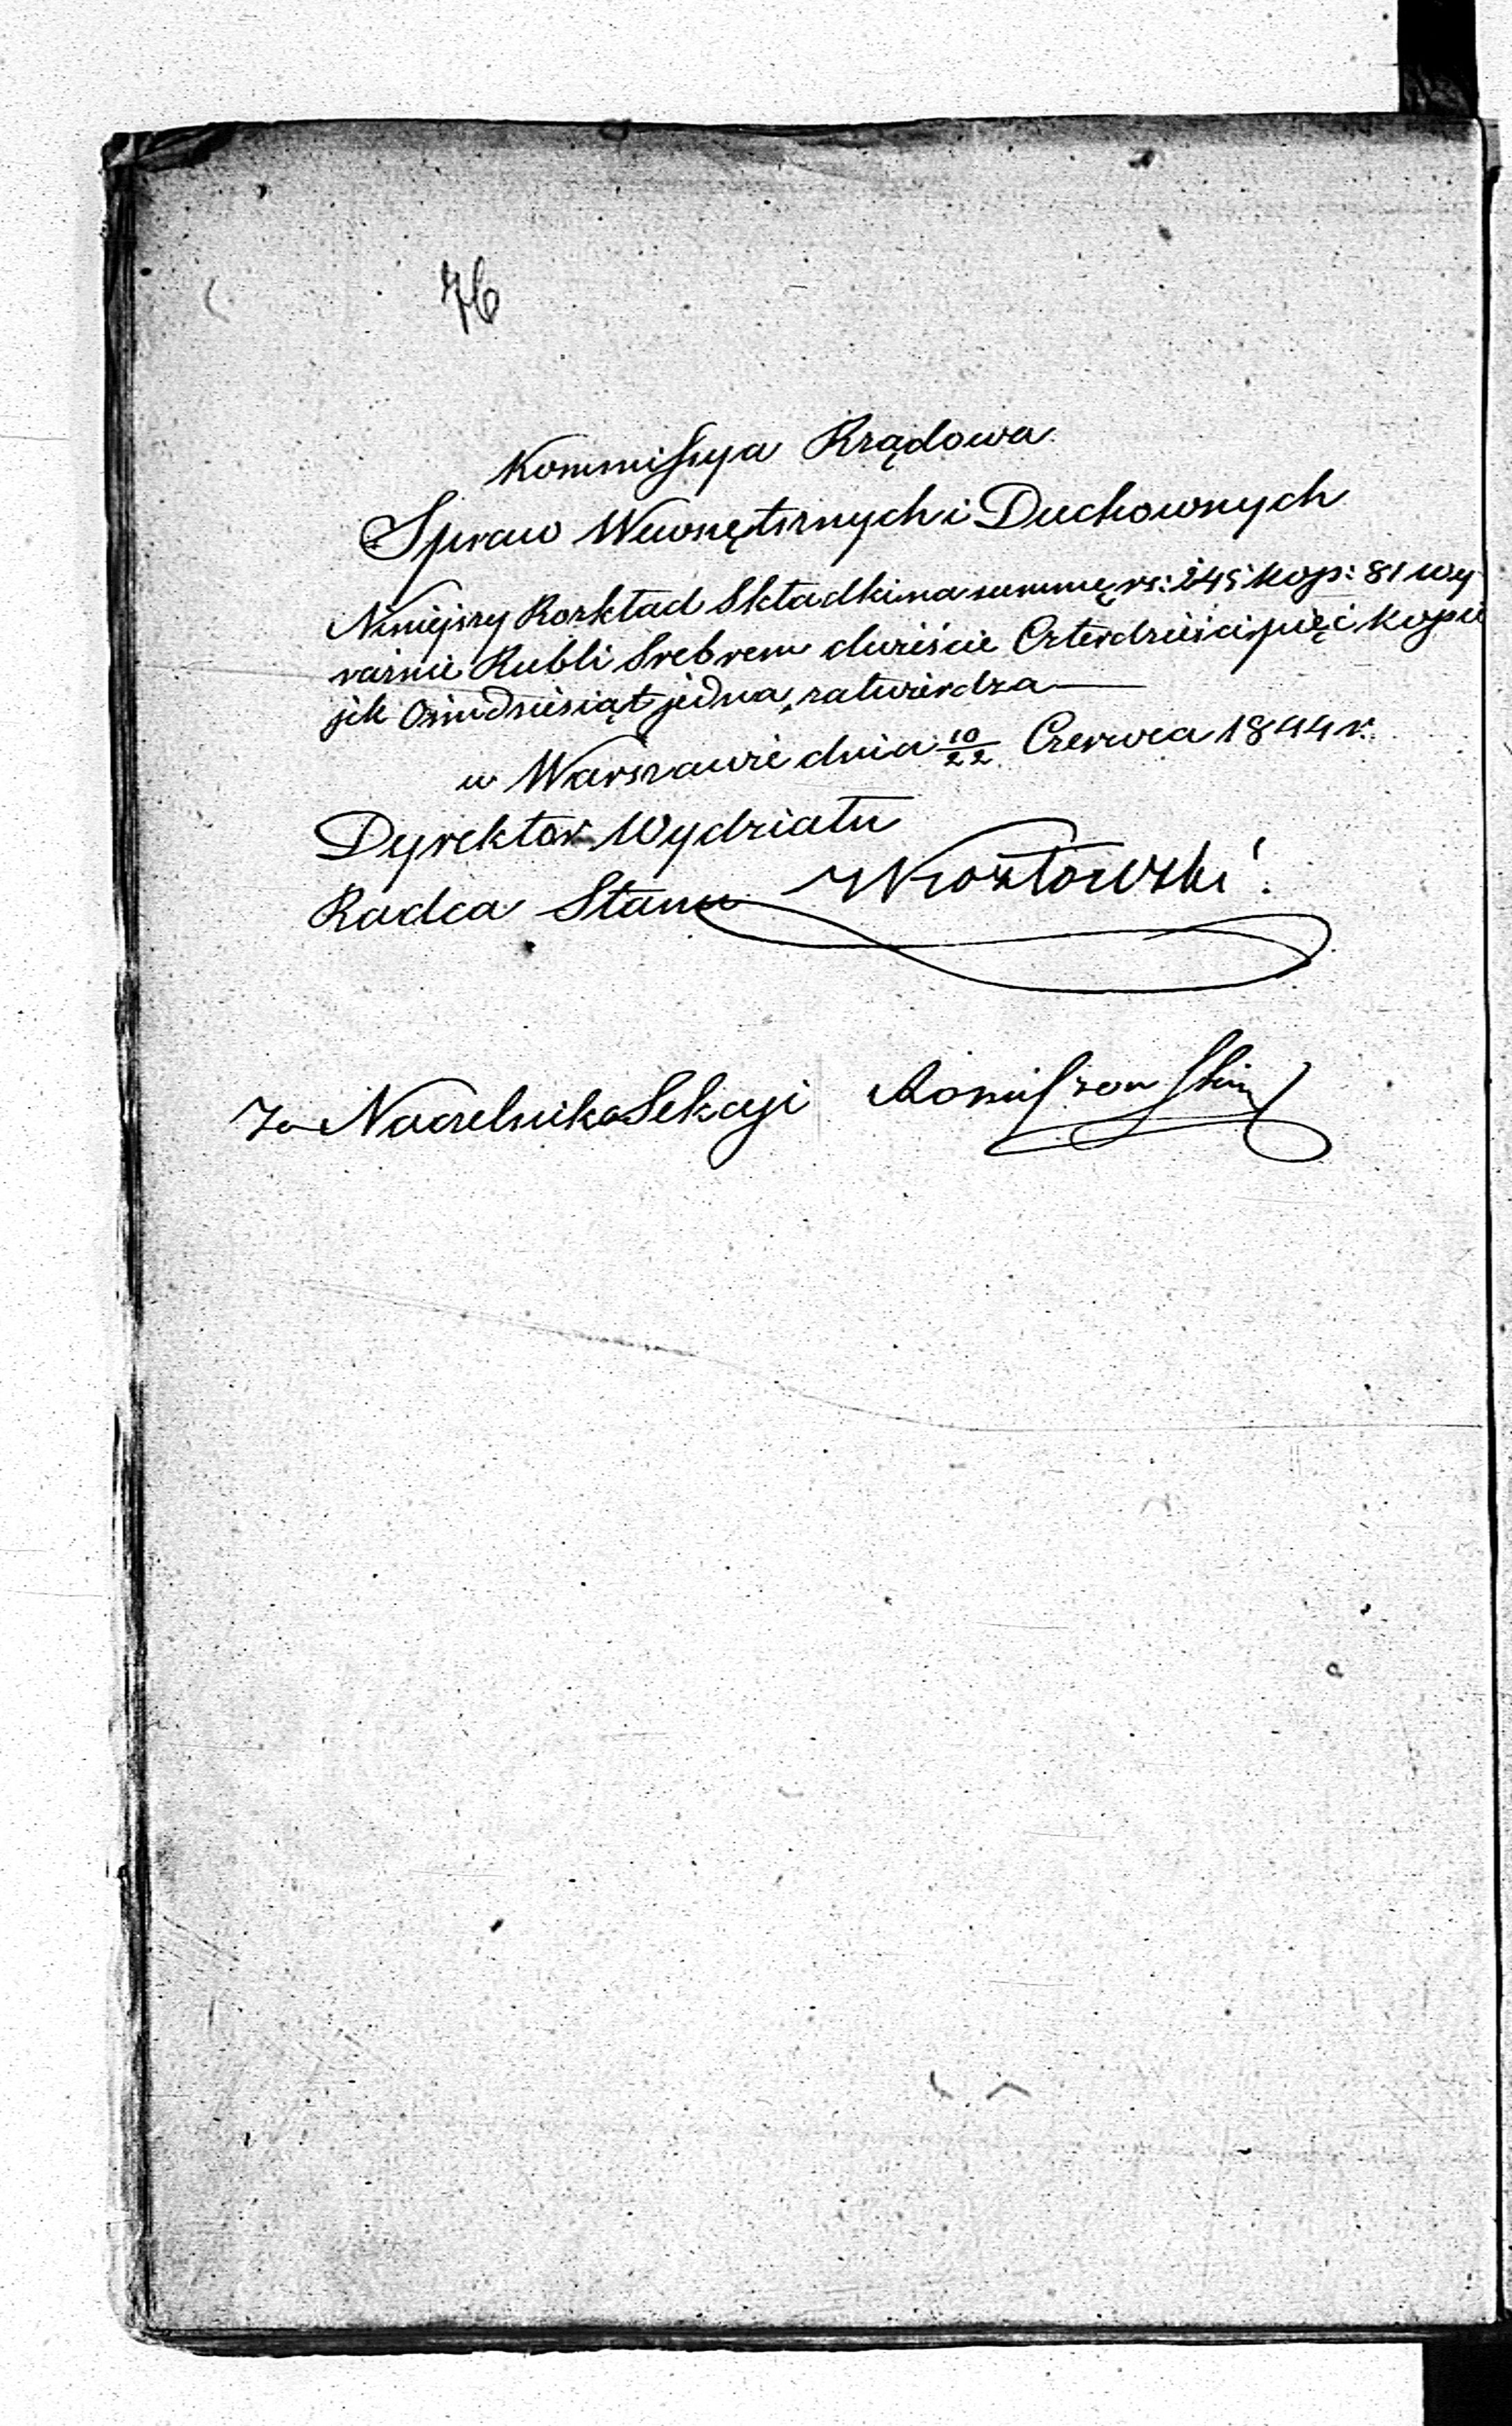 76
Kommissya Rządowa
Spraw Wewnętrznych i Duchownych
Niniejszy Rozkład Składki na summę rs: 245 kop: 81 wy
raźnie Rubli Srebrem dwieście Czterdzieści pięć kopie
jek Ośmdziesiąt jedna, zatwierdza
w Warszawie dnia 10/22 Czerwca 1844 r.
Dyrektor Wydziału
Radca Stanu Kozłowski
Za Naczelnika Sekcyi